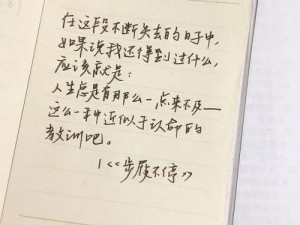 在这段不断失去的日子中,
如果说我还得到过什么,
应该就是:
人生总是有那么一点来不及——
这么一种近似于认命的
教训吧。
/<<步履不停>>